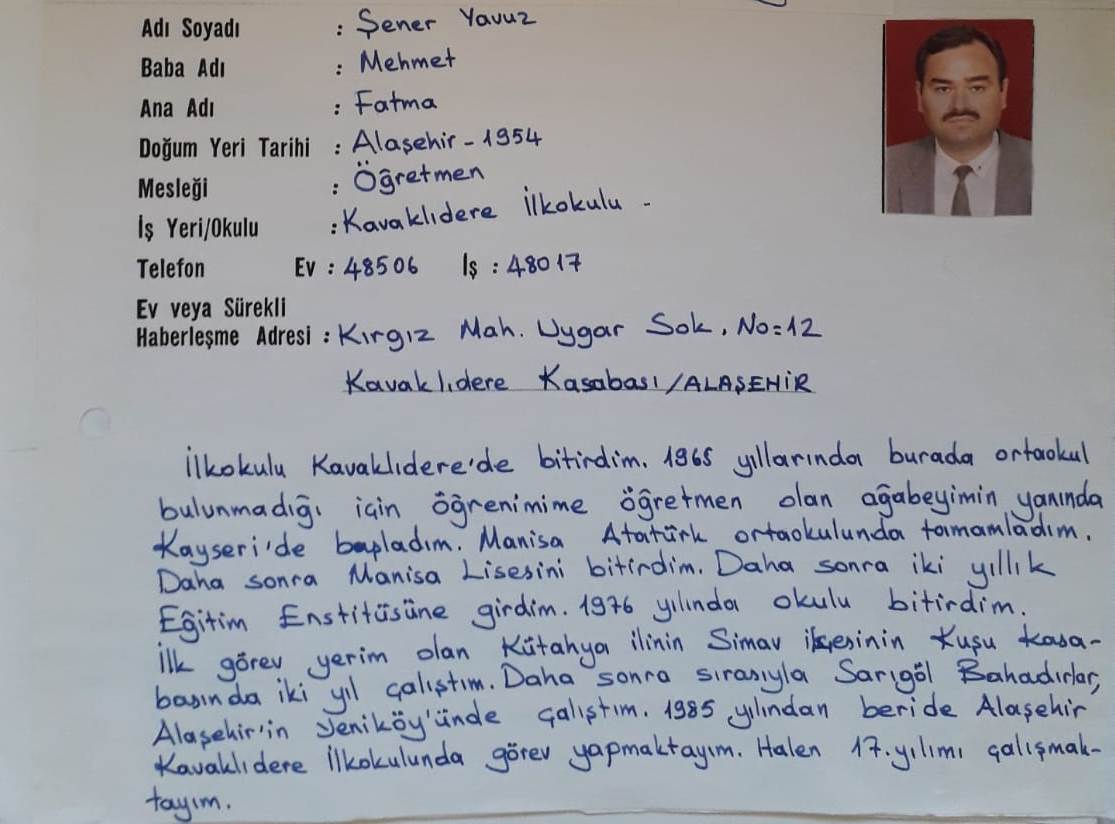 Adı Soyadı : Şener Yavuz
Baba Adı : Mehmet
Ana Adı : Fatma
Doğum Yeri Tarihi : Alaşehir - 1954
Mesleği : Öğretmen
İş Yeri/Okulu : Kavaklıdere İlkokulu -
Telefon Ev : 48506 İş : 48017
Ev veya Sürekli
Haberleşme Adresi : Kırgız Mah. Uygar Sok. No=12
Kavaklıdere Kasabası/ALAŞEHİR
İlkokulu Kavaklıdere'de bitirdim. 1965 yıllarında burada ortaokul
bulunmadığı için öğrenimime öğretmen olan ağabeyimin yanında
Kayseri'de başladım. Manisa Atatürk ortaokulunda tamamladım.
Daha sonra Manisa Lisesini bitirdim. Daha sonra iki yıllık
Eğitim Enstitüsüne girdim. 1976 yılında okulu bitirdim.
İlk görev yerim olan Kütahya ilinin Simav ilçesinin Kuşu kasa-
basında iki yıl çalıştım. Daha sonra sırasıyla Sarıgöl Bahadırlar,
Alaşehir'in Yeniköy'ünde çalıştım. 1985 yılından beride Alaşehir
Kavaklıdere İlkokulunda görev yapmaktayım. Halen 17.yılımı çalışmak-
tayım.